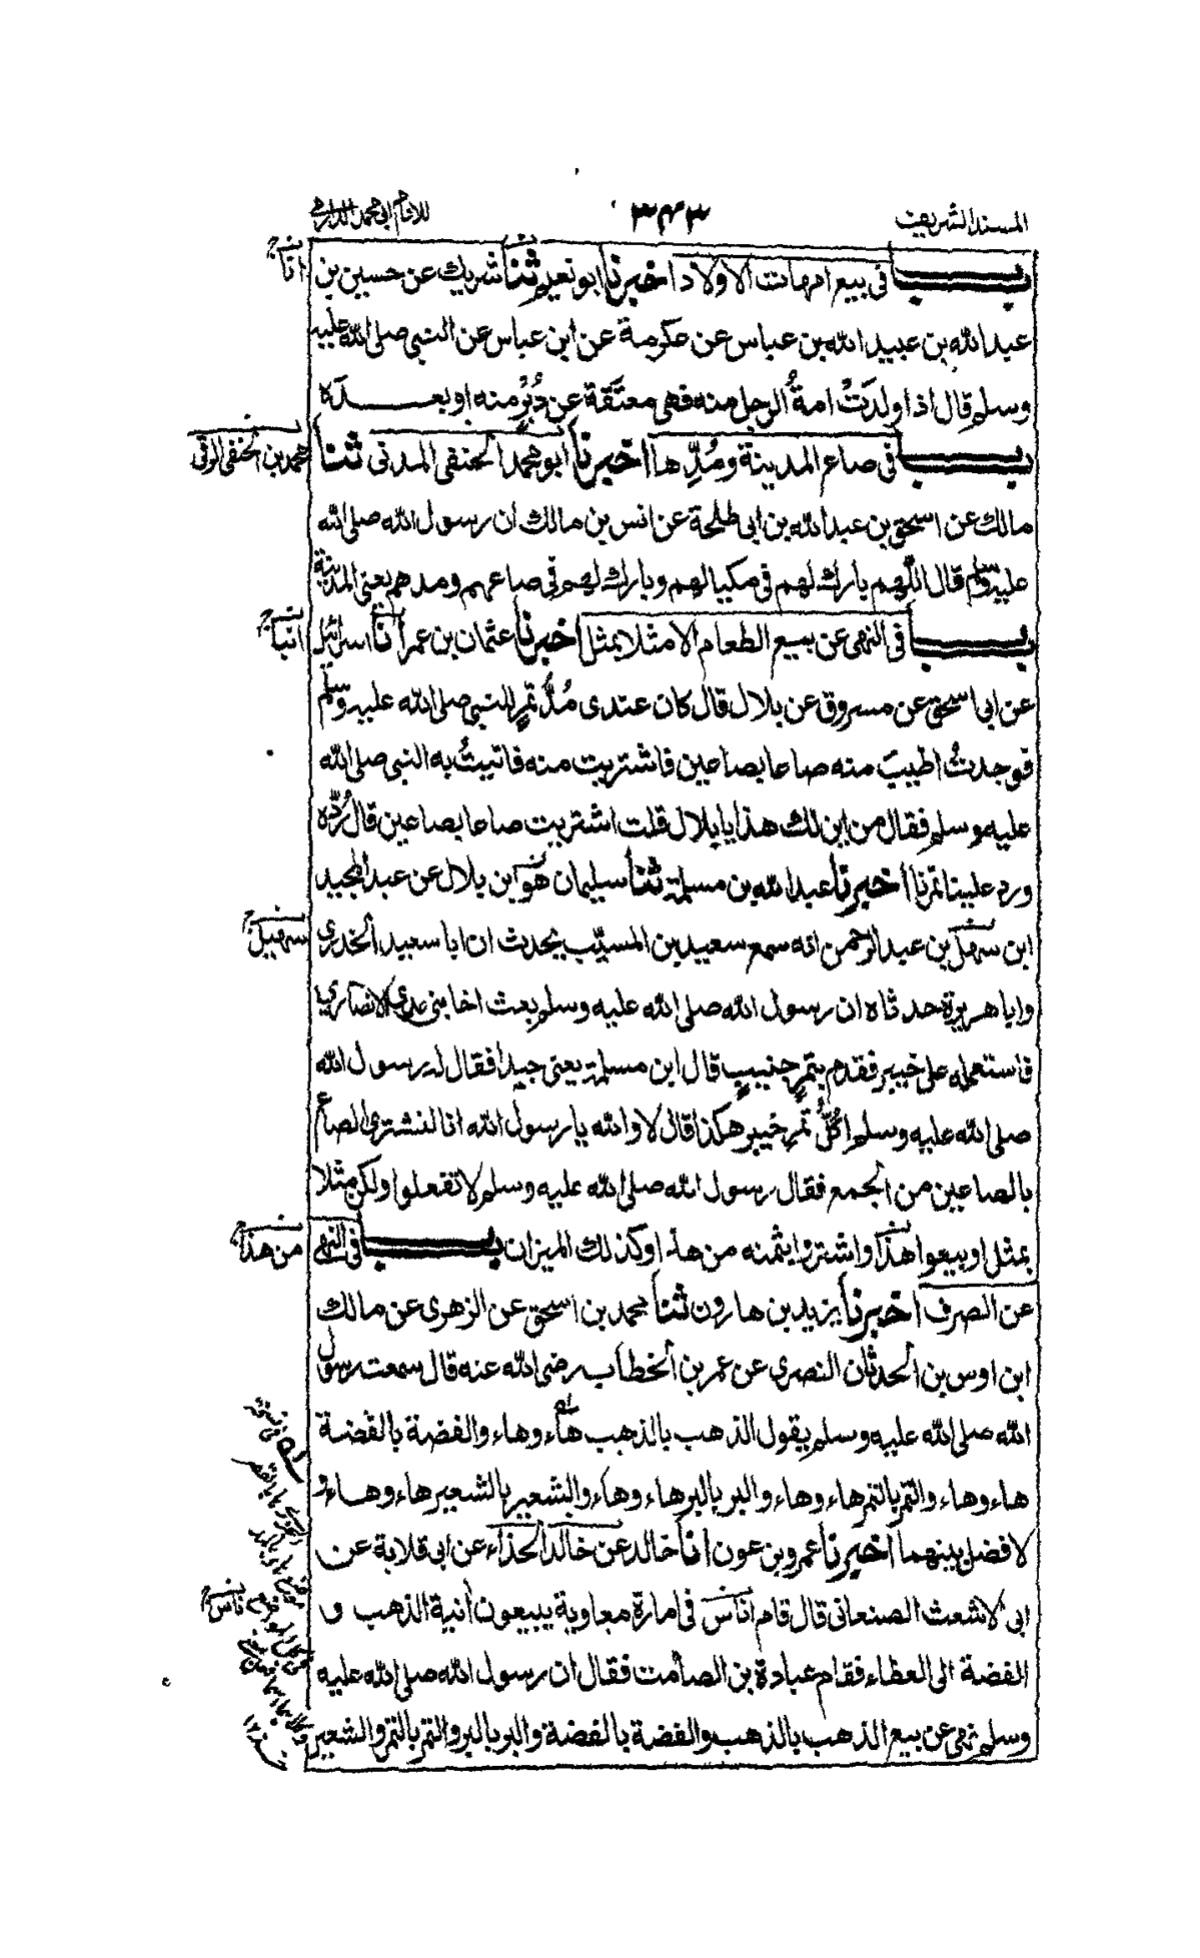 المسند الشريف ٣٤٣ للامام ابي محمد الدارمي
بــــاب في بيع امهات الاولاد اخبرنا ابو نعيم ثنا شريك عن حسين بن
انا
عبد الله بن عبيد الله بن عباس عن عكرمة عن ابن عباس عن النبي صلى الله عليه
وسلم قال اذا ولدَتْ امةُ الرجل منه فهي معتَقة عن دُبُرٍ منه او بعــــدَه
بــــاب في صاع المدينة ومُدِّها اخبرنا ابو محمد الحنفي المدني ثنا
محمد بن الحنفي الوقي
مالك عن اسحق بن عبد الله بن ابي طلحة عن انس بن مالك ان رسول الله صلى الله
عليه وسلم قال اللهم بارك لهم في مكيالهم وبارك لهم في صاعهم ومدهم يعني المدينة
بــــاب في النهي عن بيع الطعام الا مثلا بمثل اخبرنا عثمان بن عمر انا اسرائيل
انبا
عن ابي اسحق عن مسروق عن بلال قال كان عندي مُدُّ تمرٍ للنبي صلى الله عليه وسلم
فوجدتُ اطيبَ منه صاعا بصاعين فاشتريت منه فاتيتُ به النبي صلى الله
عليه وسلم فقال من اين لك هذا يا بلال قلت اشتريت صاعا بصاعين قال رُدّه
ورد علينا تمرنا اخبرنا عبد الله بن مسلمة ثنا سليمان هو ابن بلال عن عبد المجيد
ابن سهل بن عبد الرحمن انه سمع سعيد بن المسيّب يحدث ان ابا سعيد الخدري
سهيل
وابا هريرة حدثاه ان رسول الله صلى الله عليه وسلم بعث اخا بني عدي الانصاري
فاستعمله على خيبر فقدم بتمرٍ جنيبٍ قال ابن مسلمة يعني جيدا فقال له رسول الله
صلى الله عليه وسلم اكُلُّ تمرِ خيبر هكذا قال لا والله يا رسول الله انا لنشتري الصاع
بالصاعين من الجمع فقال رسول الله صلى الله عليه وسلم لا تفعلوا ولكن مثلا
بمثل او بيعوا هذا واشتروا بثمنه من هذا وكذلك الميزان بــــاب في النهي
من هذا
عن الصرف اخبرنا يزيد بن هارون ثنا محمد بن اسحق عن الزهري عن مالك
ابن اوس بن الحدثان النصري عن عمر بن الخطاب رضي الله عنه قال سمعت رسول
الله صلى الله عليه وسلم يقول الذهب بالذهب هاء وهاء والفضة بالفضة
هاء وهاء والتمر بالتمر هاء وهاء والبر بالبر هاء وهاء والشعير بالشعير هاء وهاء و
لا فضل بينهما اخبرنا عمرو بن عون انا خالد عن خالد الحذاء عن ابي قلابة عن
ابي الاشعث الصنعاني قال قام اناس في امارة معاوية يبيعون آنية الذهب و
ناس
الفضة الى العطاء فقام عبادة بن الصامت فقال ان رسول الله صلى الله عليه
وسلم نهى عن بيع الذهب بالذهب والفضة بالفضة والبر بالبر والتمر بالتمر والشعير